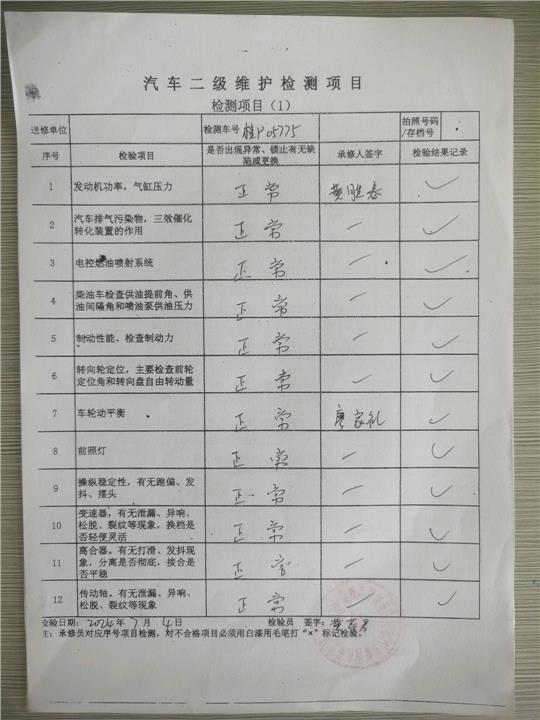 汽车二级维护检测项目
检测项目（1）
送修单位 检测车号 桂P05775 拍照号码/存档号
序号 检验项目 是否出现异常、锁止有无缺陷或更换 承修人签字 检验结果记录
1 发动机功率，气缸压力 正常 黄胜春 ✓
2 汽车排气污染物，三效催化转化装置的作用 正常 — ✓
3 电控燃油喷射系统 正常 — ✓
4 柴油车检查供油提前角、供油间隔角和喷油泵供油压力 正常 — ✓
5 制动性能、检查制动力 正常 — ✓
6 转向轮定位，主要检查前轮定位角和转向盘自由转动量 正常 — ✓
7 车轮动平衡 正常 廖家礼 ✓
8 前照灯 正常 — ✓
9 操纵稳定性，有无跑偏、发抖、摆头 正常 — ✓
10 变速器，有无泄漏、异响、松脱、裂纹等现象，换档是否轻便灵活 正常 — ✓
11 离合器，有无打滑、发抖现象，分离是否彻底，接合是否平稳 正常 — ✓
12 传动轴，有无泄漏、异响、松脱、裂纹等现象 正常 — ✓
检验日期：2024年7月4日 检验员 签字：
注：承修员对应序号项目检测，对不合格项目必须用白漆用毛笔打“×”标记检验。